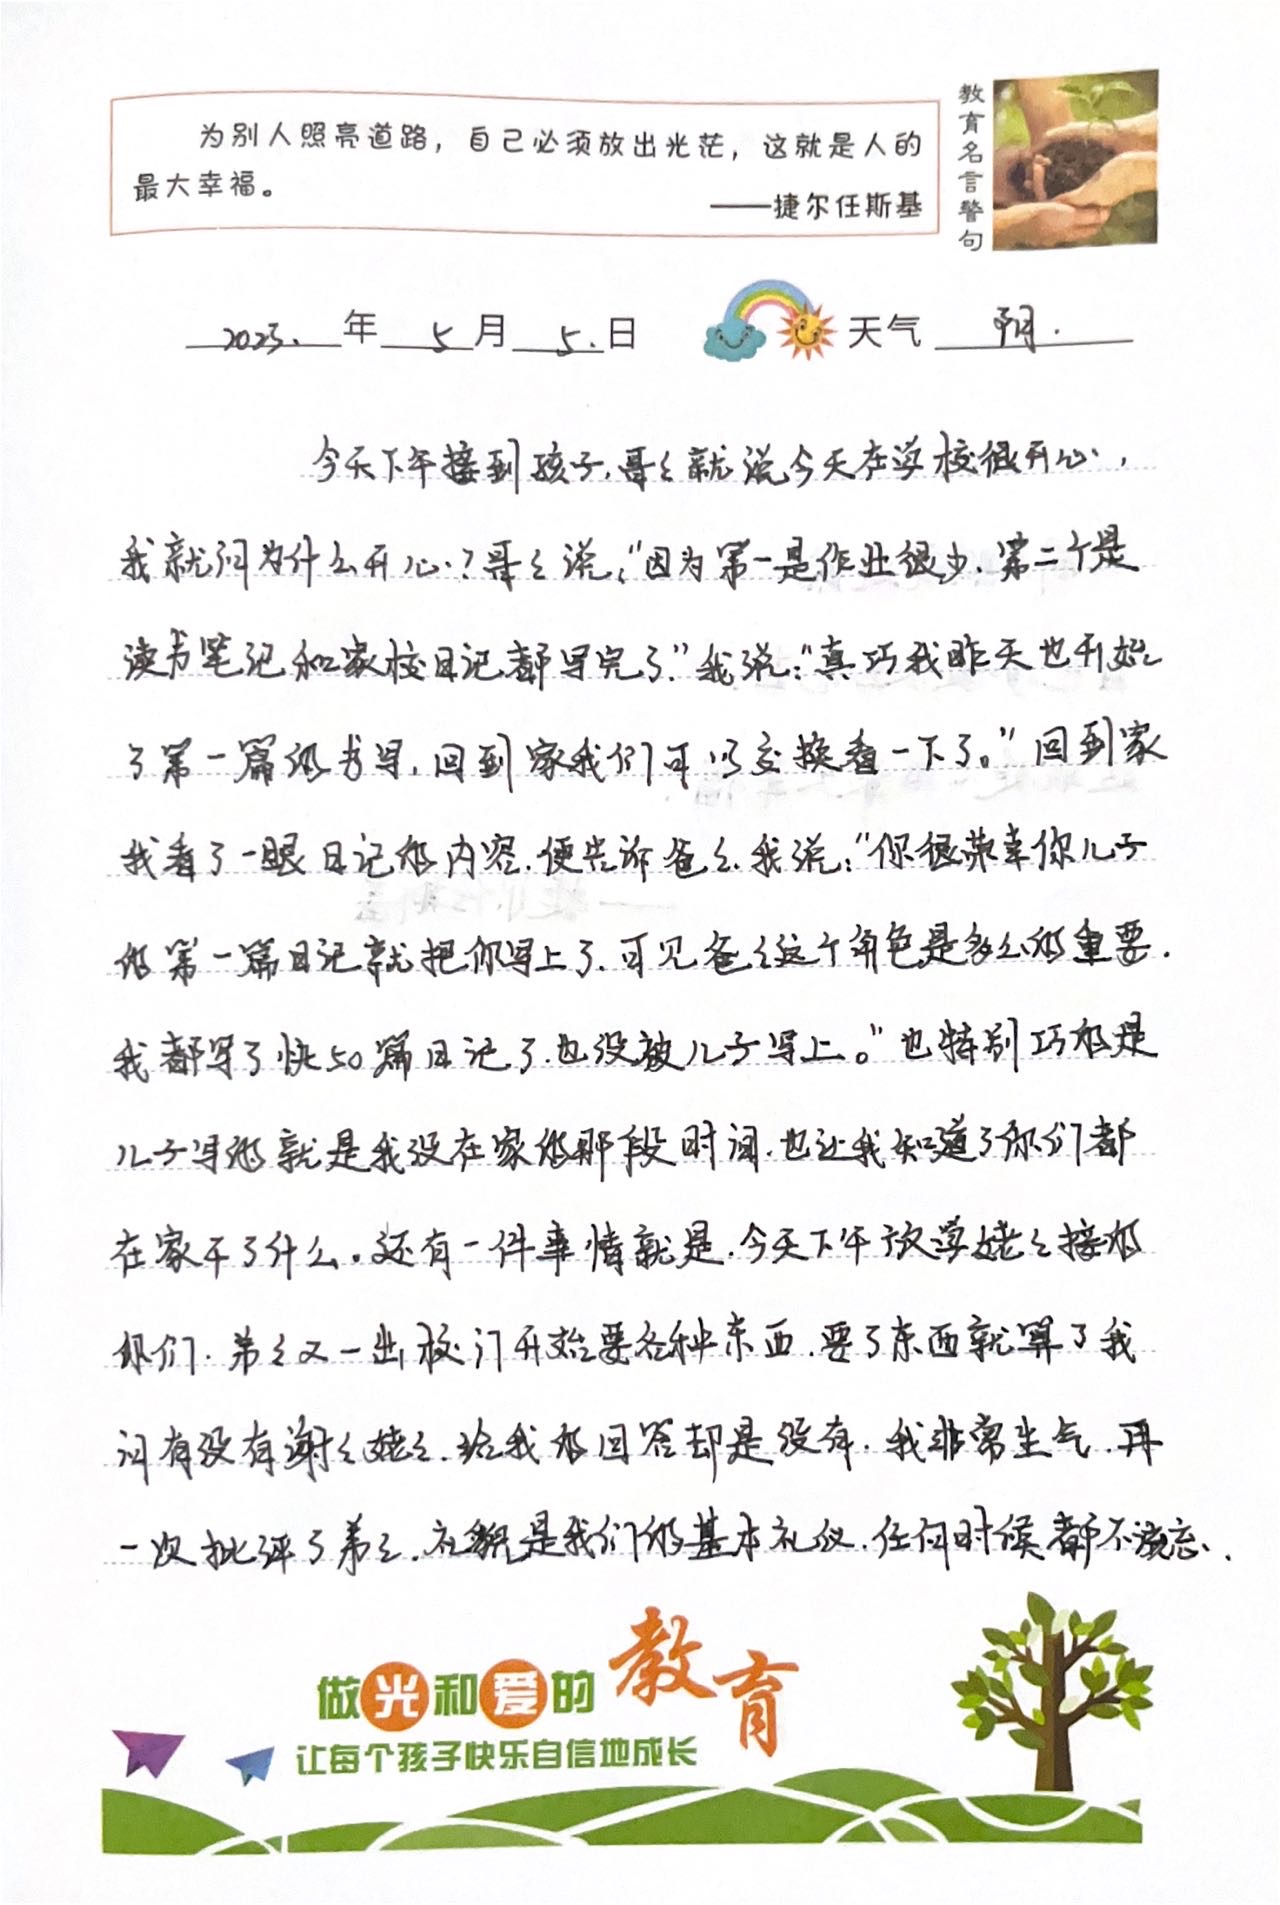 为别人照亮道路，自己必须放出光茫，这就是人的
最大幸福。
——捷尔任斯基
教育名言警句
2025.年5月5.日 天气 阴.
今天下午接到孩子,哥々就说今天在学校很开心,
我就问为什么开心?哥々说:“因为第一是作业很少.第二个是
读书笔记和家校日记都写完了.”我说:“真巧我昨天也开始
了第一篇的书写,回到家我们可以交换看一下了。”回到家
我看了一眼日记的内容.便告诉爸々.我说:“你很荣幸你儿子
的第一篇日记就把你写上了.可见爸々这个角色是多么的重要.
我都写了快50篇日记了.也没被儿子写上。”也特别巧的是
儿子写的就是我没在家的那段时间.也让我知道了你们都
在家干了什么。还有一件事情就是.今天下午放学姥々接的
你们.弟々又一出校门开始要各种东西.要了东西就算了我
问有没有谢々姥々.给我的回答却是没有.我非常生气.再
一次批评了弟々.礼貌是我们的基本礼仪.任何时候都不该忘.
做光和爱的教育
让每个孩子快乐自信地成长